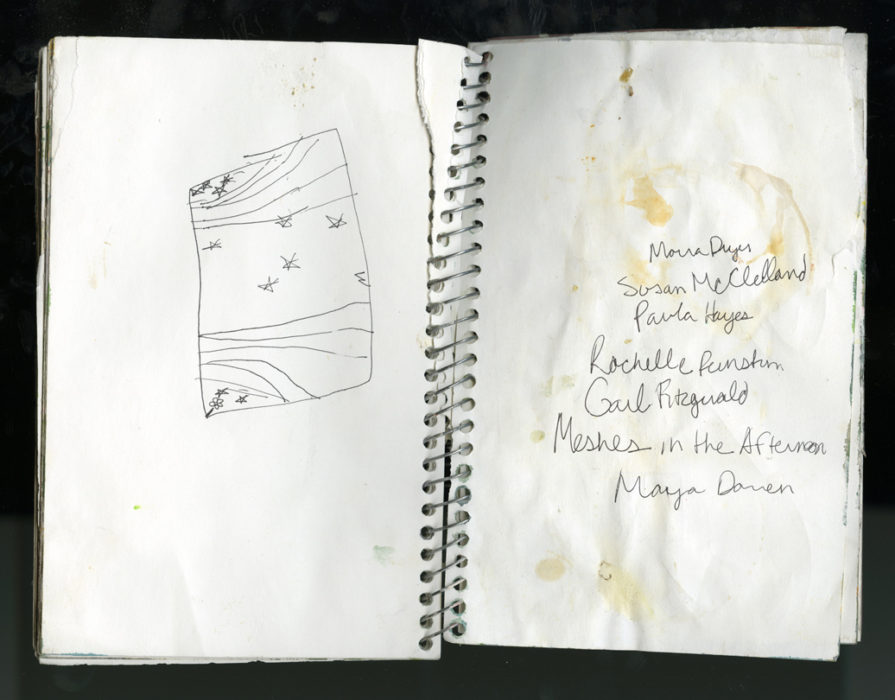 Moira Dryer
Susan McClelland
Paula Hayes
Rochelle Feinstein
Gail Fitzgerald
Meshes in the Afternoon
Maya Daren